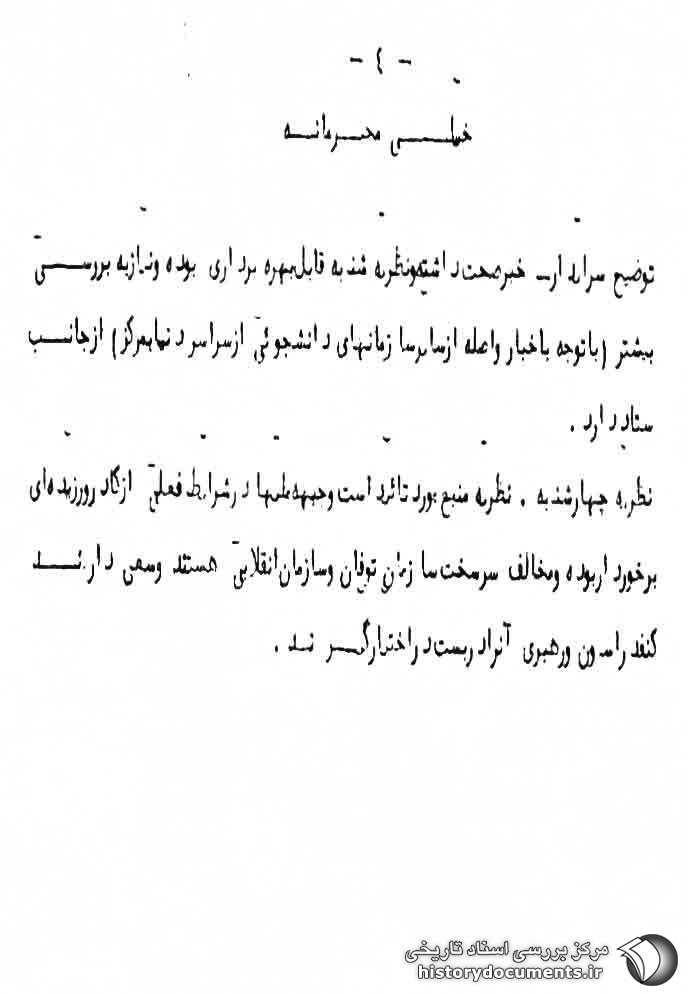 - ٤ -
خیلـــی محـــرمانـــه
توضیح سرابدار‌ـ خبرصحت داشته‌ونظریه شنبه قابل‌بهره برداری بوده ونیازبه بررســـی
بیشتر (باتوجه باخبار واصله ازسایرسا زمانهای دانشجوئی ازسراسر دنیابمرکز) ازجانـــب
ستاد دارد .
نظریه چهارشنبه . نظریه منبع مورد تائید است وجبهه ملیها درشرایط فعلی ازکادر ورزیده‌ای
برخورد اربوده ومخالف سرسخت سا زمان توفان وسازمان انقلابی هستند وسعی دارنـــد
کنفد راسیون ورهبری آنراد ربست دراختیارگیـــر ند .
مرکز بررسی اسناد تاریخی
historydocuments.ir